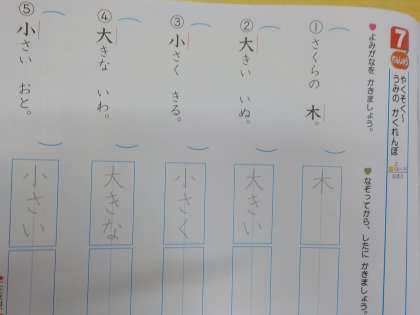 7
やくそく
うみの かくれんぼ
よみがなを かきましょう。
① さくらの 木。
② 大きい いぬ。
③ 小さく きる。
④ 大きな いわ。
⑤ 小さい おと。
なぞってから、したに かきましょう。
木
大きい
小さく
大きな
小さい